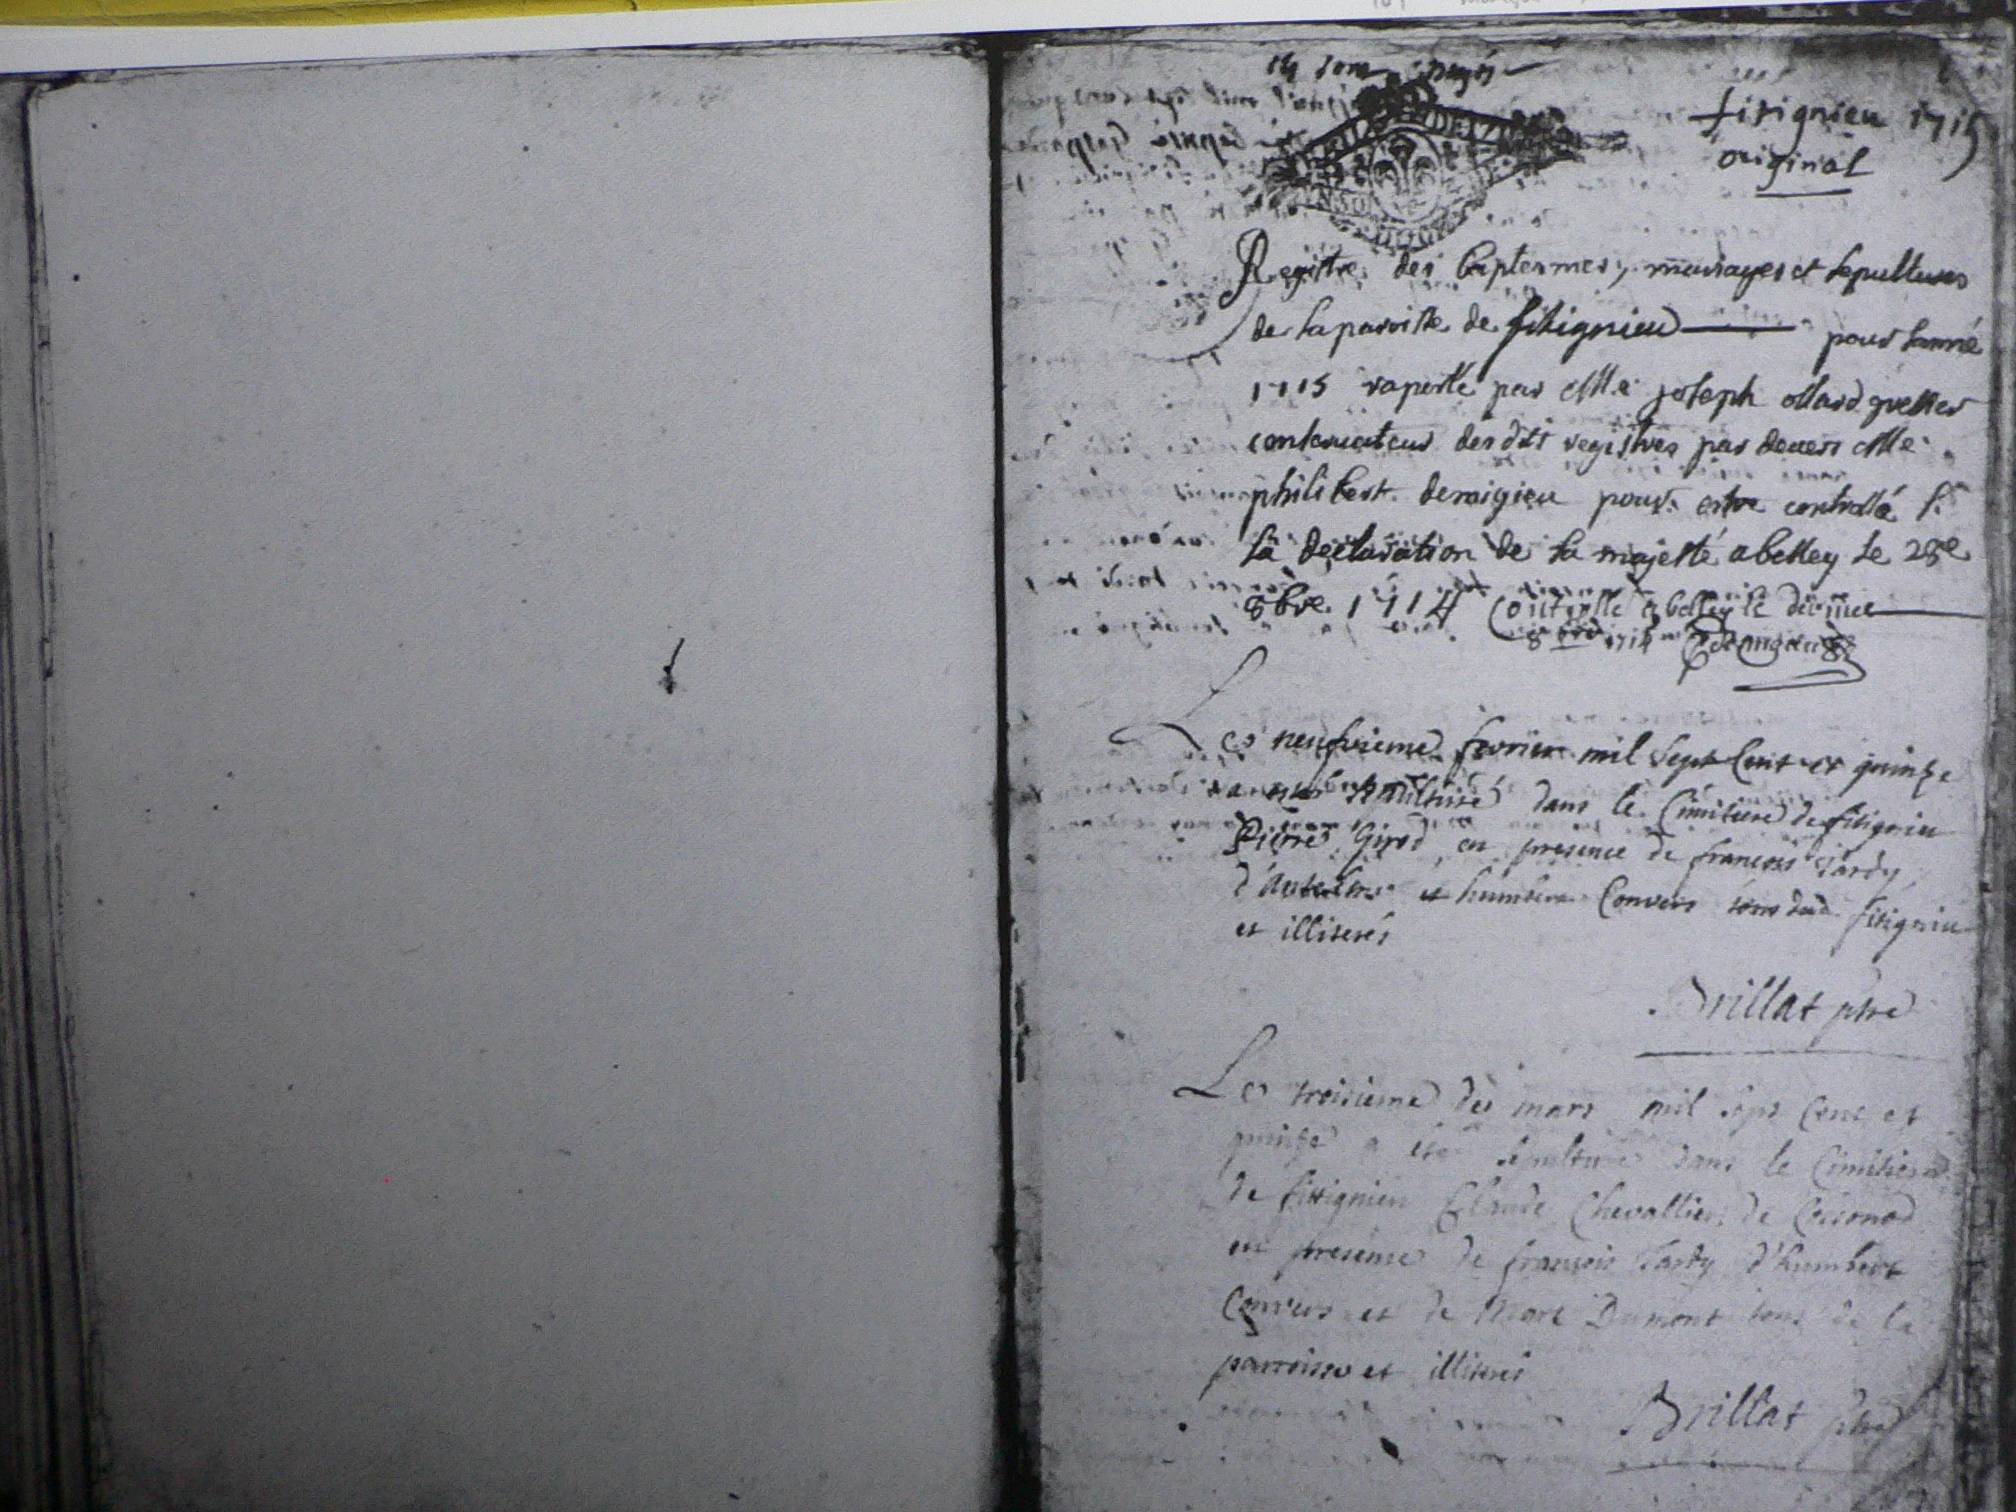 fitignieu 1715
original
Registre des baptesmes, mariages et sepultures
de la paroisse de fitignieu pour lanné
1715 raporté par Me joseph ollard greffier
conservateur desdits registres par devers Me
philibert demigieu pour estre controllé s.
la declaration de sa majesté abelley le 28e
8bre 1714 Controllé a belley le
8bre 1714
Le neufvieme fevrier mil sept cent et quinze
a esté sepulturé dans le Cimitiere de fitignieu
Pierre Girod, en presence de francois Tardy
et humbert Convers tous dud. fitignieu
et illiterés
Brillat ptre
Le troisieme de mars mil sept cent et
quinze a eté sepulturé dans le Cimitiere
de fitignieu Claude Chevallier de
en presence de francois Tardy d'humbert
Convers et de Marc Dumont tous de la
parroisse et illiterés
Brillat ptre